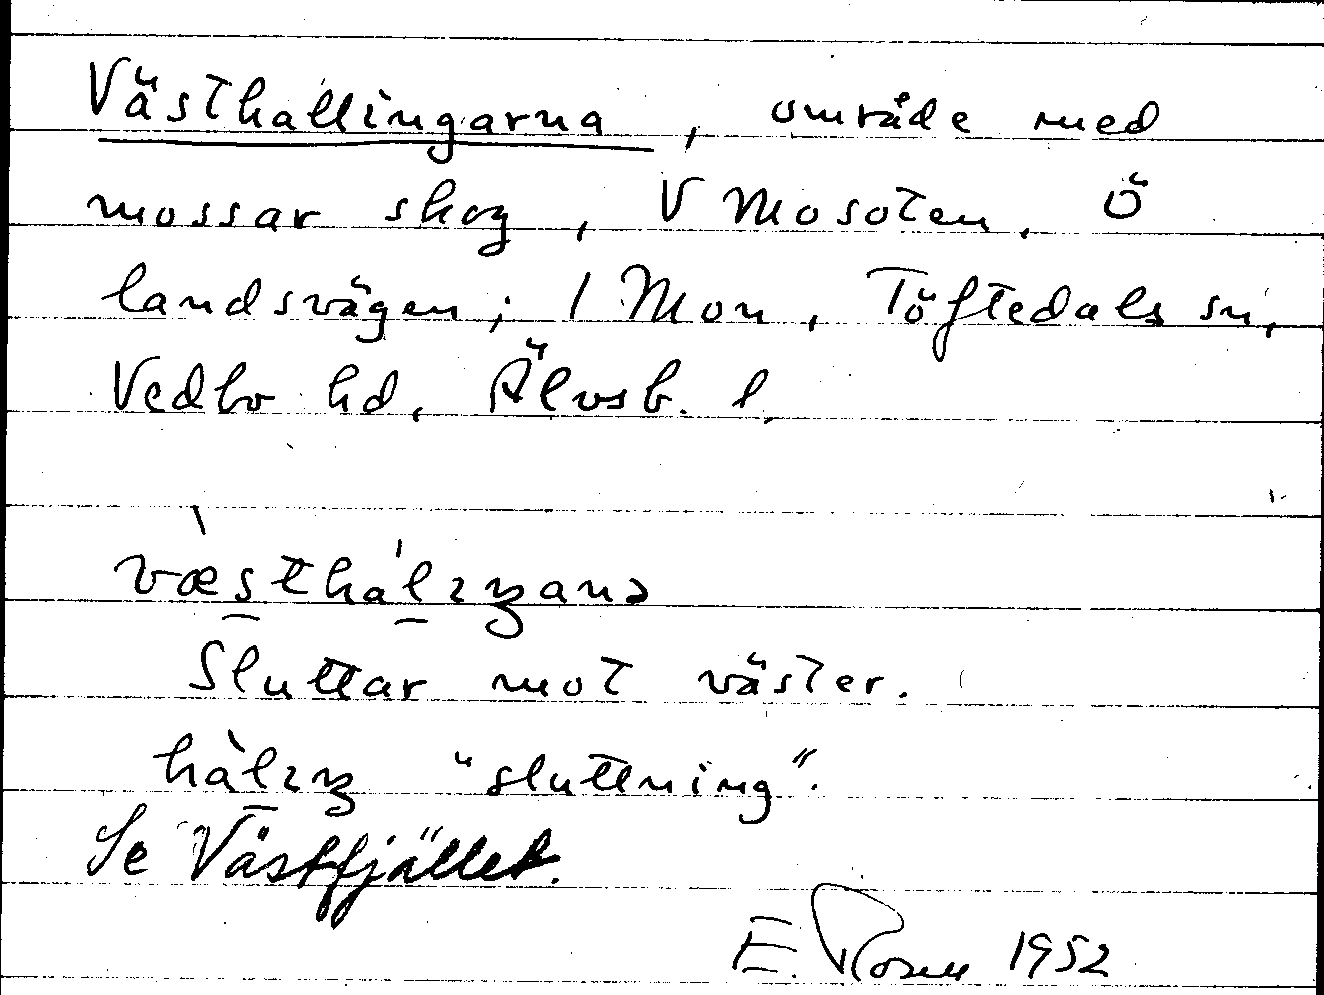 Västhallingarna, område med
mossar skog, V Mosoten, Ö
landsvägen; / Mon, Töftedals sn,
Vedbo hd, Älvsb. l.
Sluttar mot väster.
"sluttning".
Se Västfjället.
E. 1952